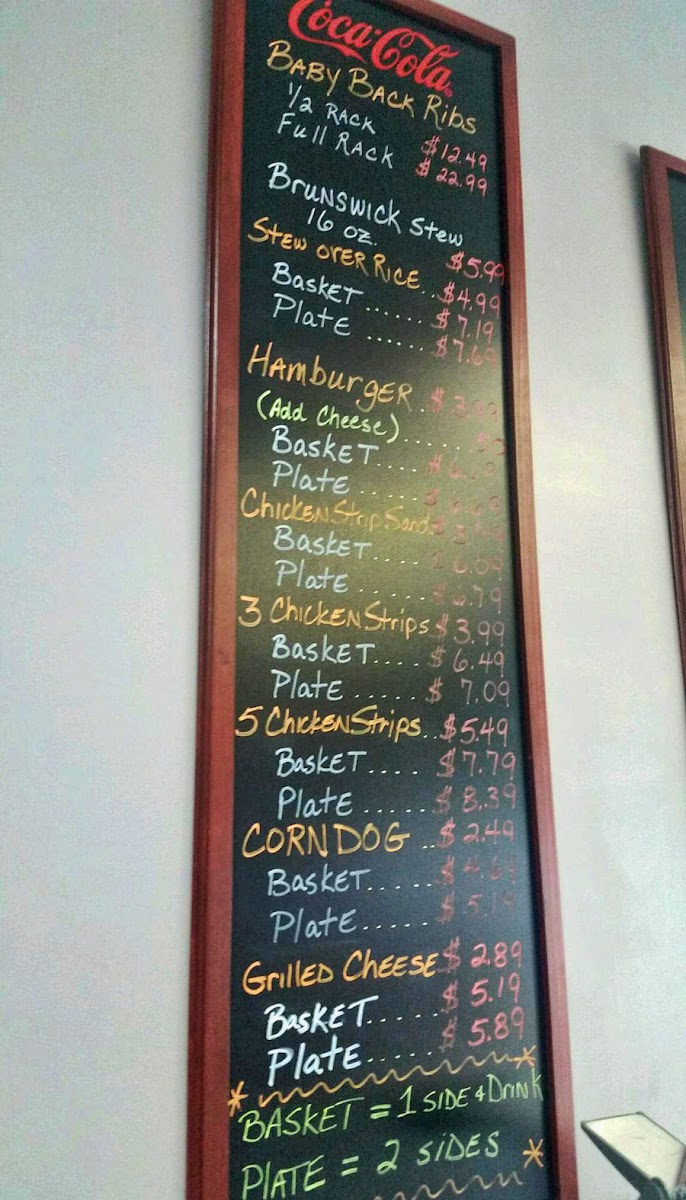 Coca-Cola
Baby Back Ribs
1/2 Rack $12.49
Full Rack $22.99
Brunswick Stew
16 oz. $5.99
Stew over Rice.. $4.99
Basket...... $7.19
Plate ...... $7.69
Hamburger .
(Add Cheese)......
Basket....
Plate ......
Chicken Strip Sand.
Basket.... 6.09
Plate .. $6.79
3 Chicken Strips $3.99
Basket.... $6.49
Plate ...... $7.09
5 Chicken Strips.. $5.49
Basket.... $7.79
Plate ...... $8.39
CORN DOG .. $2.49
Basket...... $4.69
Plate...... $5.19
Grilled Cheese $2.89
Basket...... $5.19
Plate..... $5.89
BASKET = 1 SIDE & DRINK
PLATE = 2 SIDES